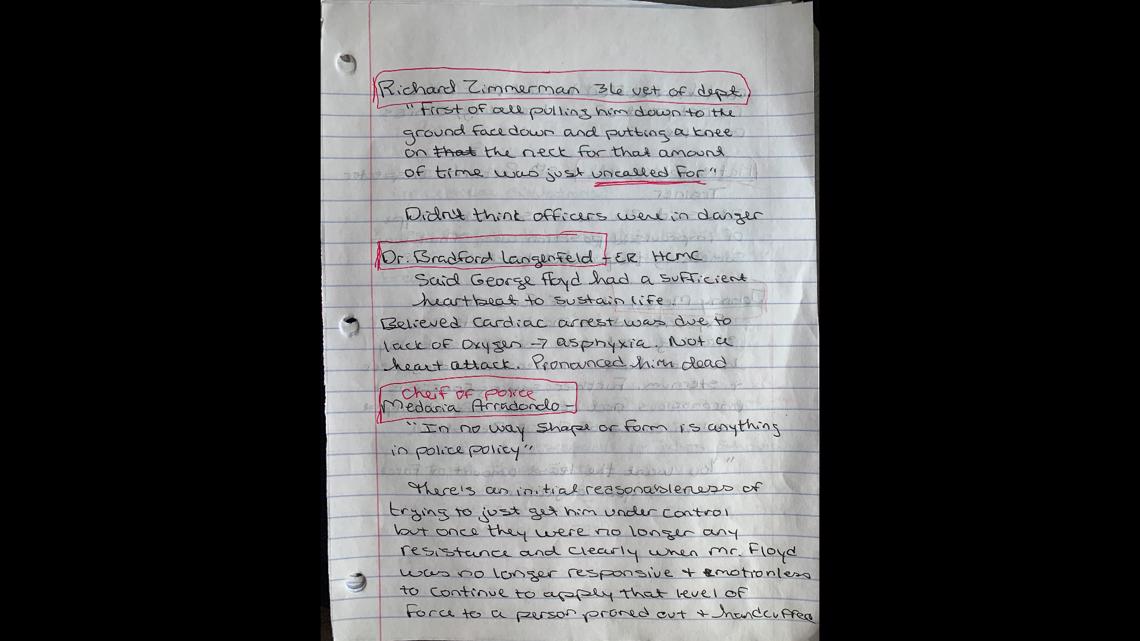 Richard Zimmerman 36 vet of dept.
"First of all pulling him down to the
ground facedown and putting a knee
on that the neck for that amount
of time was just uncalled for"
Didn't think officers were in danger
Dr. Bradford Langenfeld - ER HCMC
Said George Floyd had a sufficient
heartbeat to sustain life.
Believed cardiac arrest was due to
lack of oxygen → asphyxia. Not a
heart attack. Pronounced him dead
Cheif of police
Medaria Arradondo -
"In no way shape or form is anything
in police policy"
There's an initial reasonableness of
trying to just get him under control
but once they were no longer any
resistance and clearly when Mr. Floyd
was no longer responsive + motionless
to continue to apply that level of
force to a person proned out + handcuffed